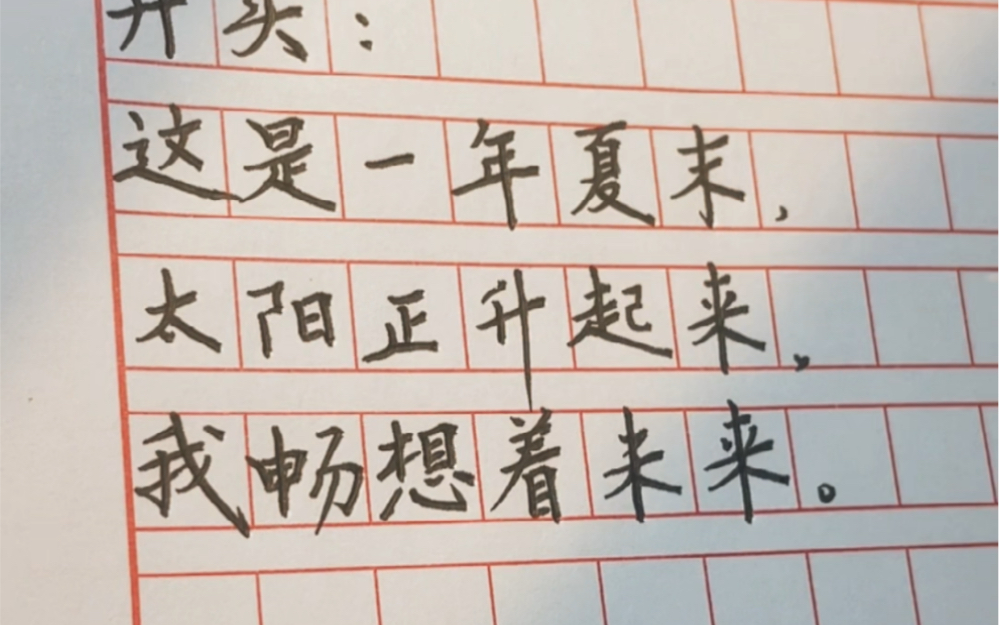 开头：
这是一年夏末，
太阳正升起来，
我畅想着未来。